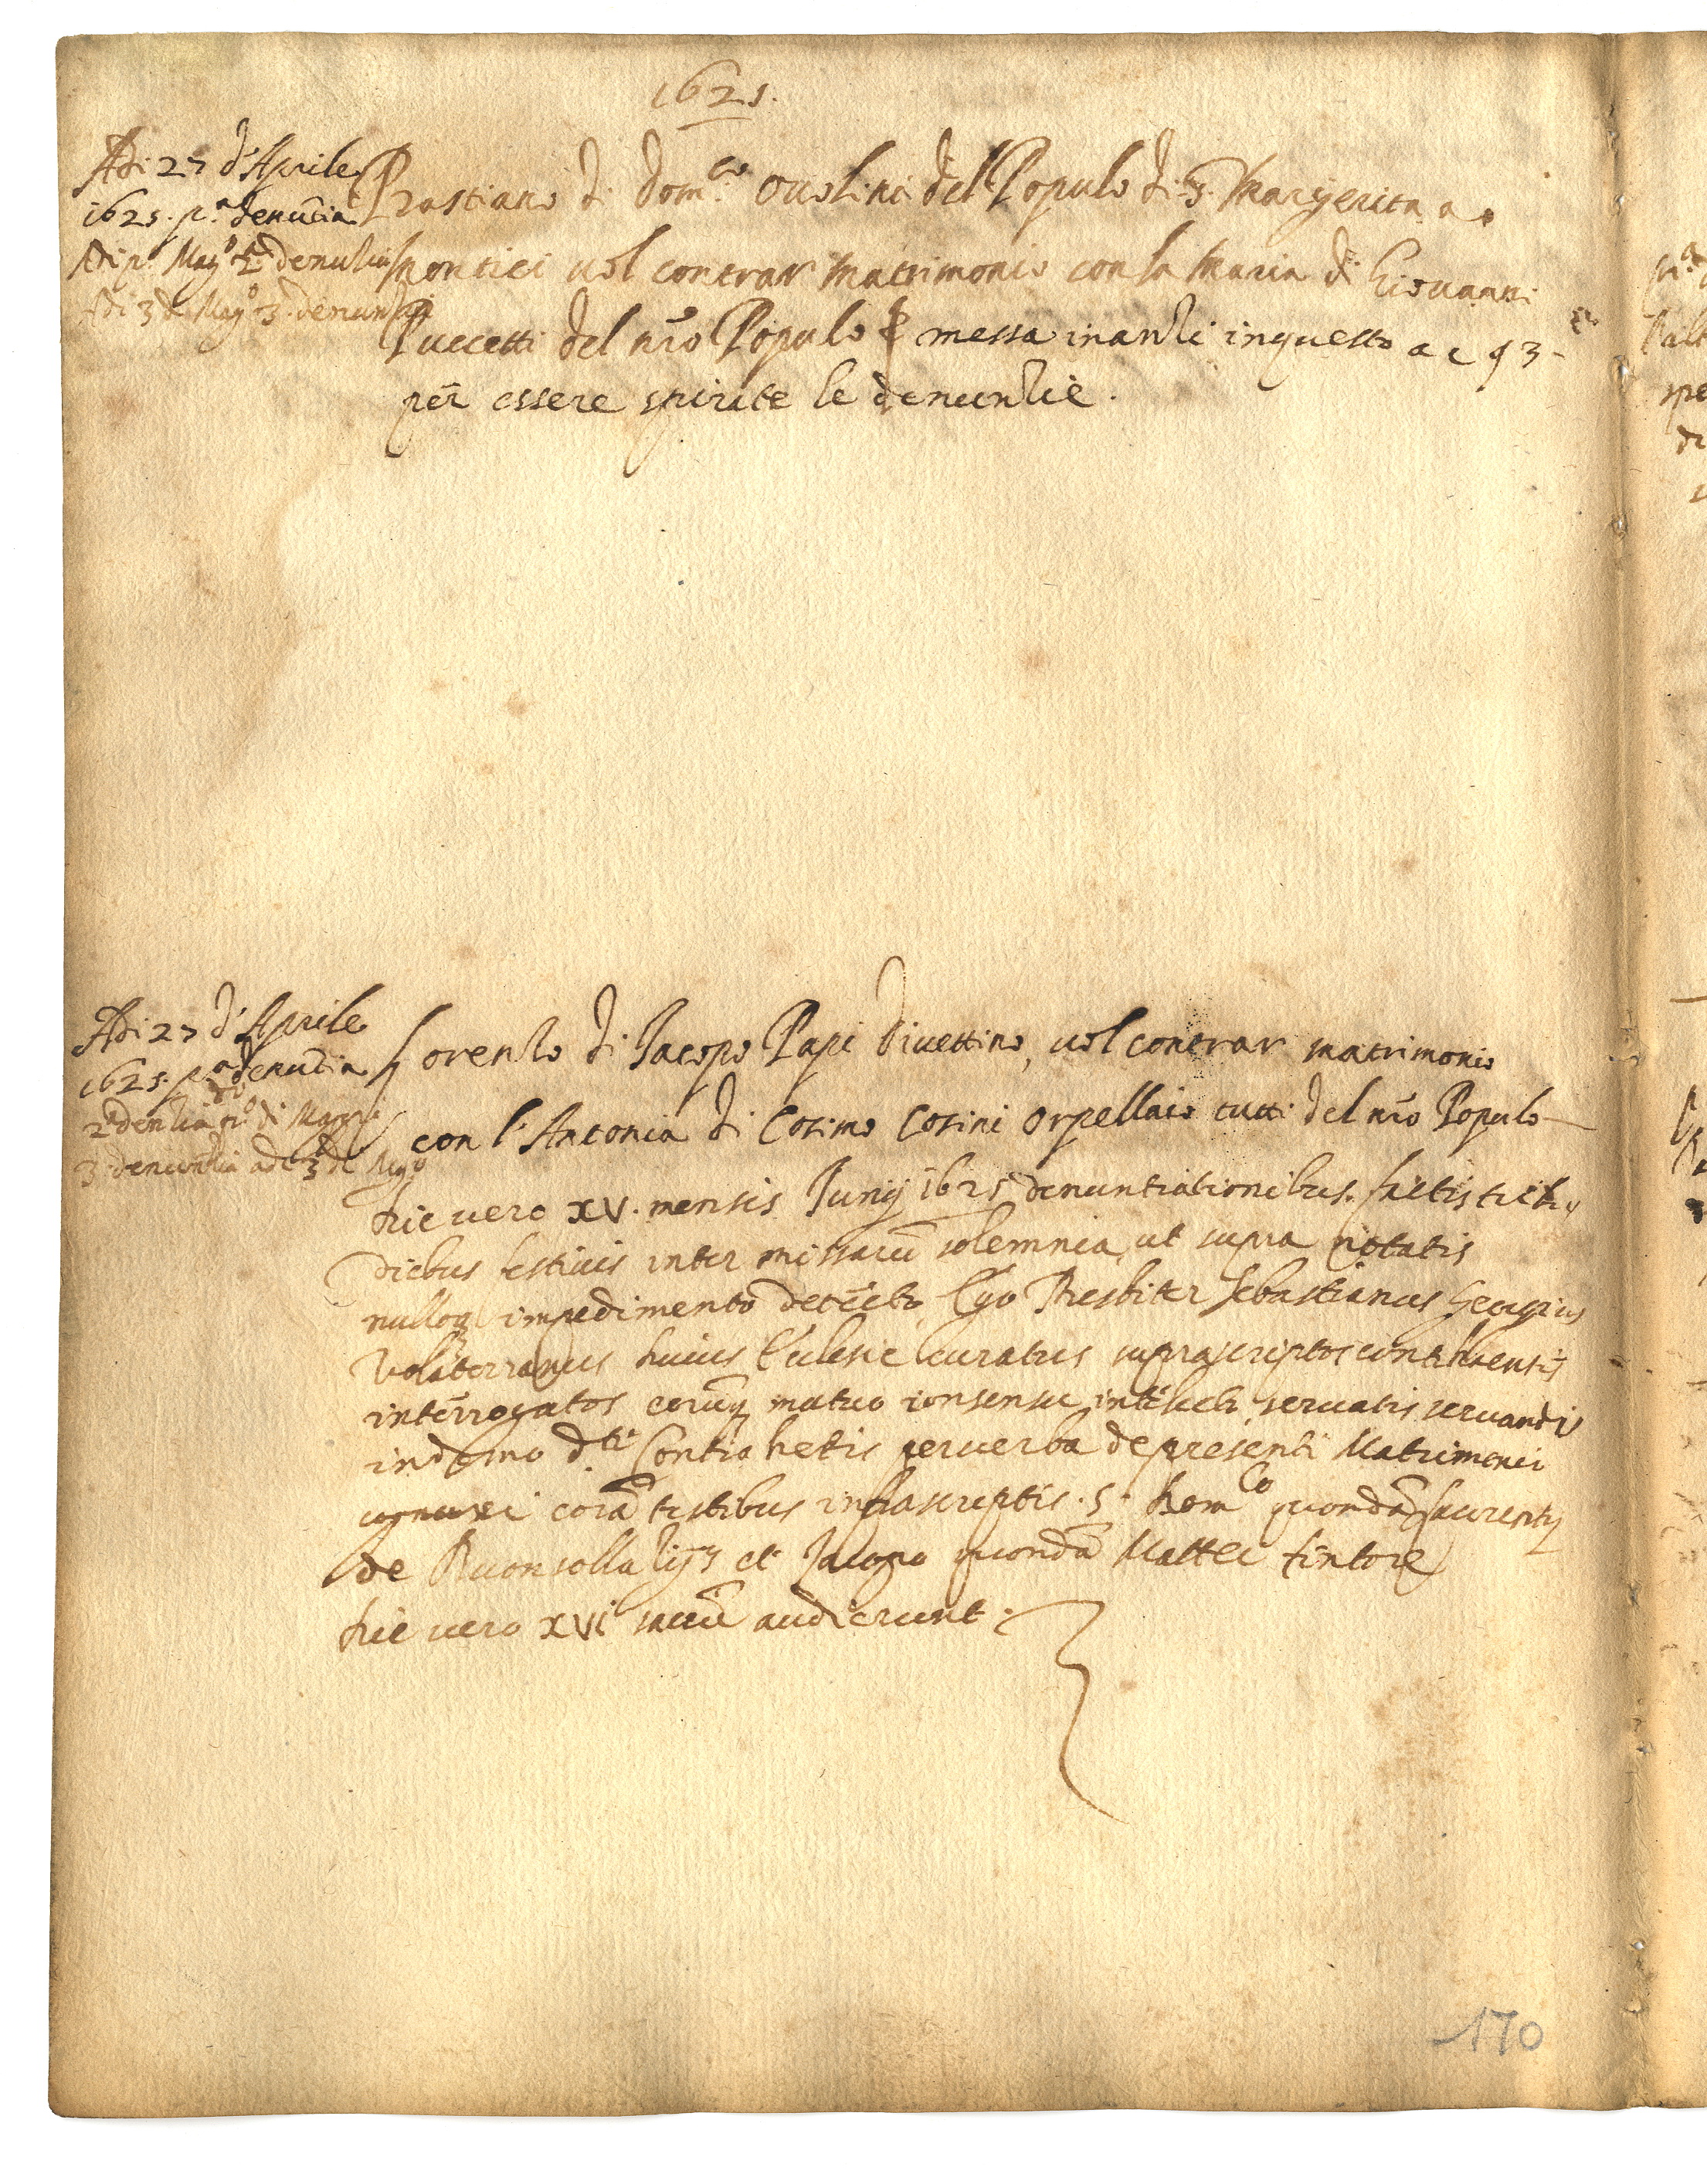 1625.
Adi 27 d'Aprile
1625. p.a denũtia
Adi p.o Mag.o 2.a denuntia
Adi 3 di Mag.o 3.a denuntia
Bastiano di Dom.co Ovolini del Populo di S. Margerita a
Montici vol contrar matrimonio con la Maria di Giovanni
Puccetti del nr̃o Populo messa inanzi in questo a c 93
per essere spirate le denuntie.
Adi 27 d'Aprile
1625. p.a denũtia
2.a denũtia p.o di Maggio
3.a denuntia adi 3 di Mag.o
Lorenzo di Jacopo Papi Divettino, vol contrar matrimonio
con l'Antonia di Cosimo Cosini orpellaio tutti del nr̃o Populo
hie vero XV. mensis Junij 1625 denuntiationibus factis trib.
diebus festivis inter missarũ solemnia, ut supra notatis
nulloq impedimento detecto Ego Presbiter Sebastianus Georgius
Volaterranus huius Eclesie curatus suprascriptos contrhentis
interrogatos eorũq mutuo consensu intelecto servatis servandis
in domo d.te Contrahetis per verba de presenti Matrimonii
coniunxi corã testibus infrascriptis. S. Dom.co quondã Laurentij
de Buonsollazijs et Jacopo quondã Mattei tintore
hie vero XVI audierunt.
170